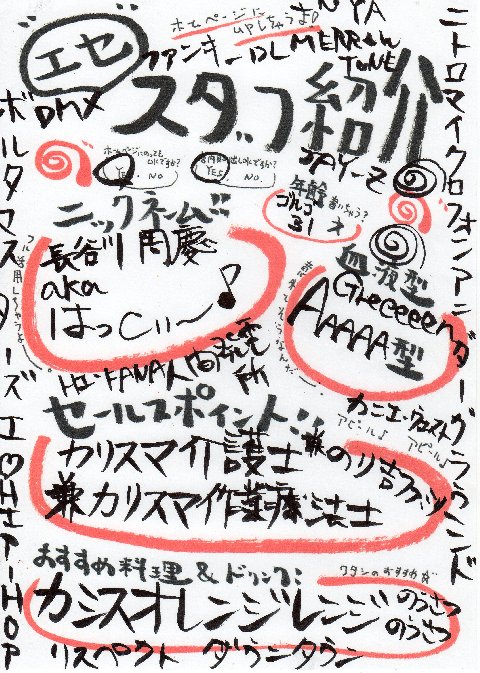 ホームページに
UPしちゃうよ♪
NYA
エセ
ファンキーDL MERRoN
TUNE
DMX
スタッフ紹介
JAY-Z
ホームページにのっても
OKですか?
YES. NO.
YES. NO.
年齢
ゴルゴ
31才
ニックネーム:
長谷川 周慶
aka
はっCぃ〜♪
血液型
GReeeeeN
AAAAA型
ニトロマイクロフォンアンダーグラウンド
カニエ・ウェスト
アピール♪
アピール♪
セールスポイント:
カリスマ介護士 兼
兼カリスマ作業療法士
おすすめ料理 & ドリンク:
ワタシのおすすめだ
カシスオレンジレンジ
のうさつ
のうさつ
リスペクト ダウンタウン
I♡HIP-HOP